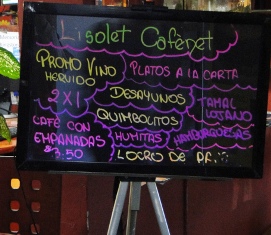 Lisolet Cafénet
PROMO VINO
HERVIDO
2X1
PLATOS A LA CARTA
DESAYUNOS
QUIMBOLITOS
TAMAL
LOJANO
CAFÉ CON
EMPANADAS
$3.50
HUMITAS
HAMBURGUESAS
LOCRO DE